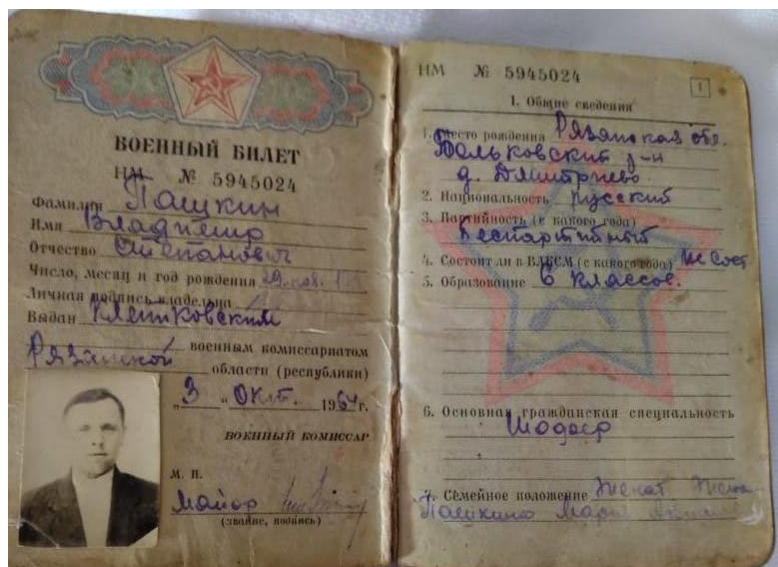 ВОЕННЫЙ БИЛЕТ
НМ № 5945024
Фамилия Пашкин
Имя Владимир
Отчество Степанович
Число, месяц и год рождения 29 ноя.
Личная подпись владельца
Выдан Клепиковским
военным комиссариатом
Рязанской области (республики)
„3“ Окт. 1964 г.
ВОЕННЫЙ КОМИССАР
М. П.
Майор
(звание, подпись)
НМ № 5945024
1
I. Общие сведения
1. Место рождения Рязанская обл.
р-н
д. Дмитриево
2. Национальность русский
3. Партийность (с какого года)
Беспартийный
4. Состоит ли в ВЛКСМ (с какого года) не сост
5. Образование 6 классов.
6. Основная гражданская специальность
7. Семейное положение Женат Жена
Пашкина Мария